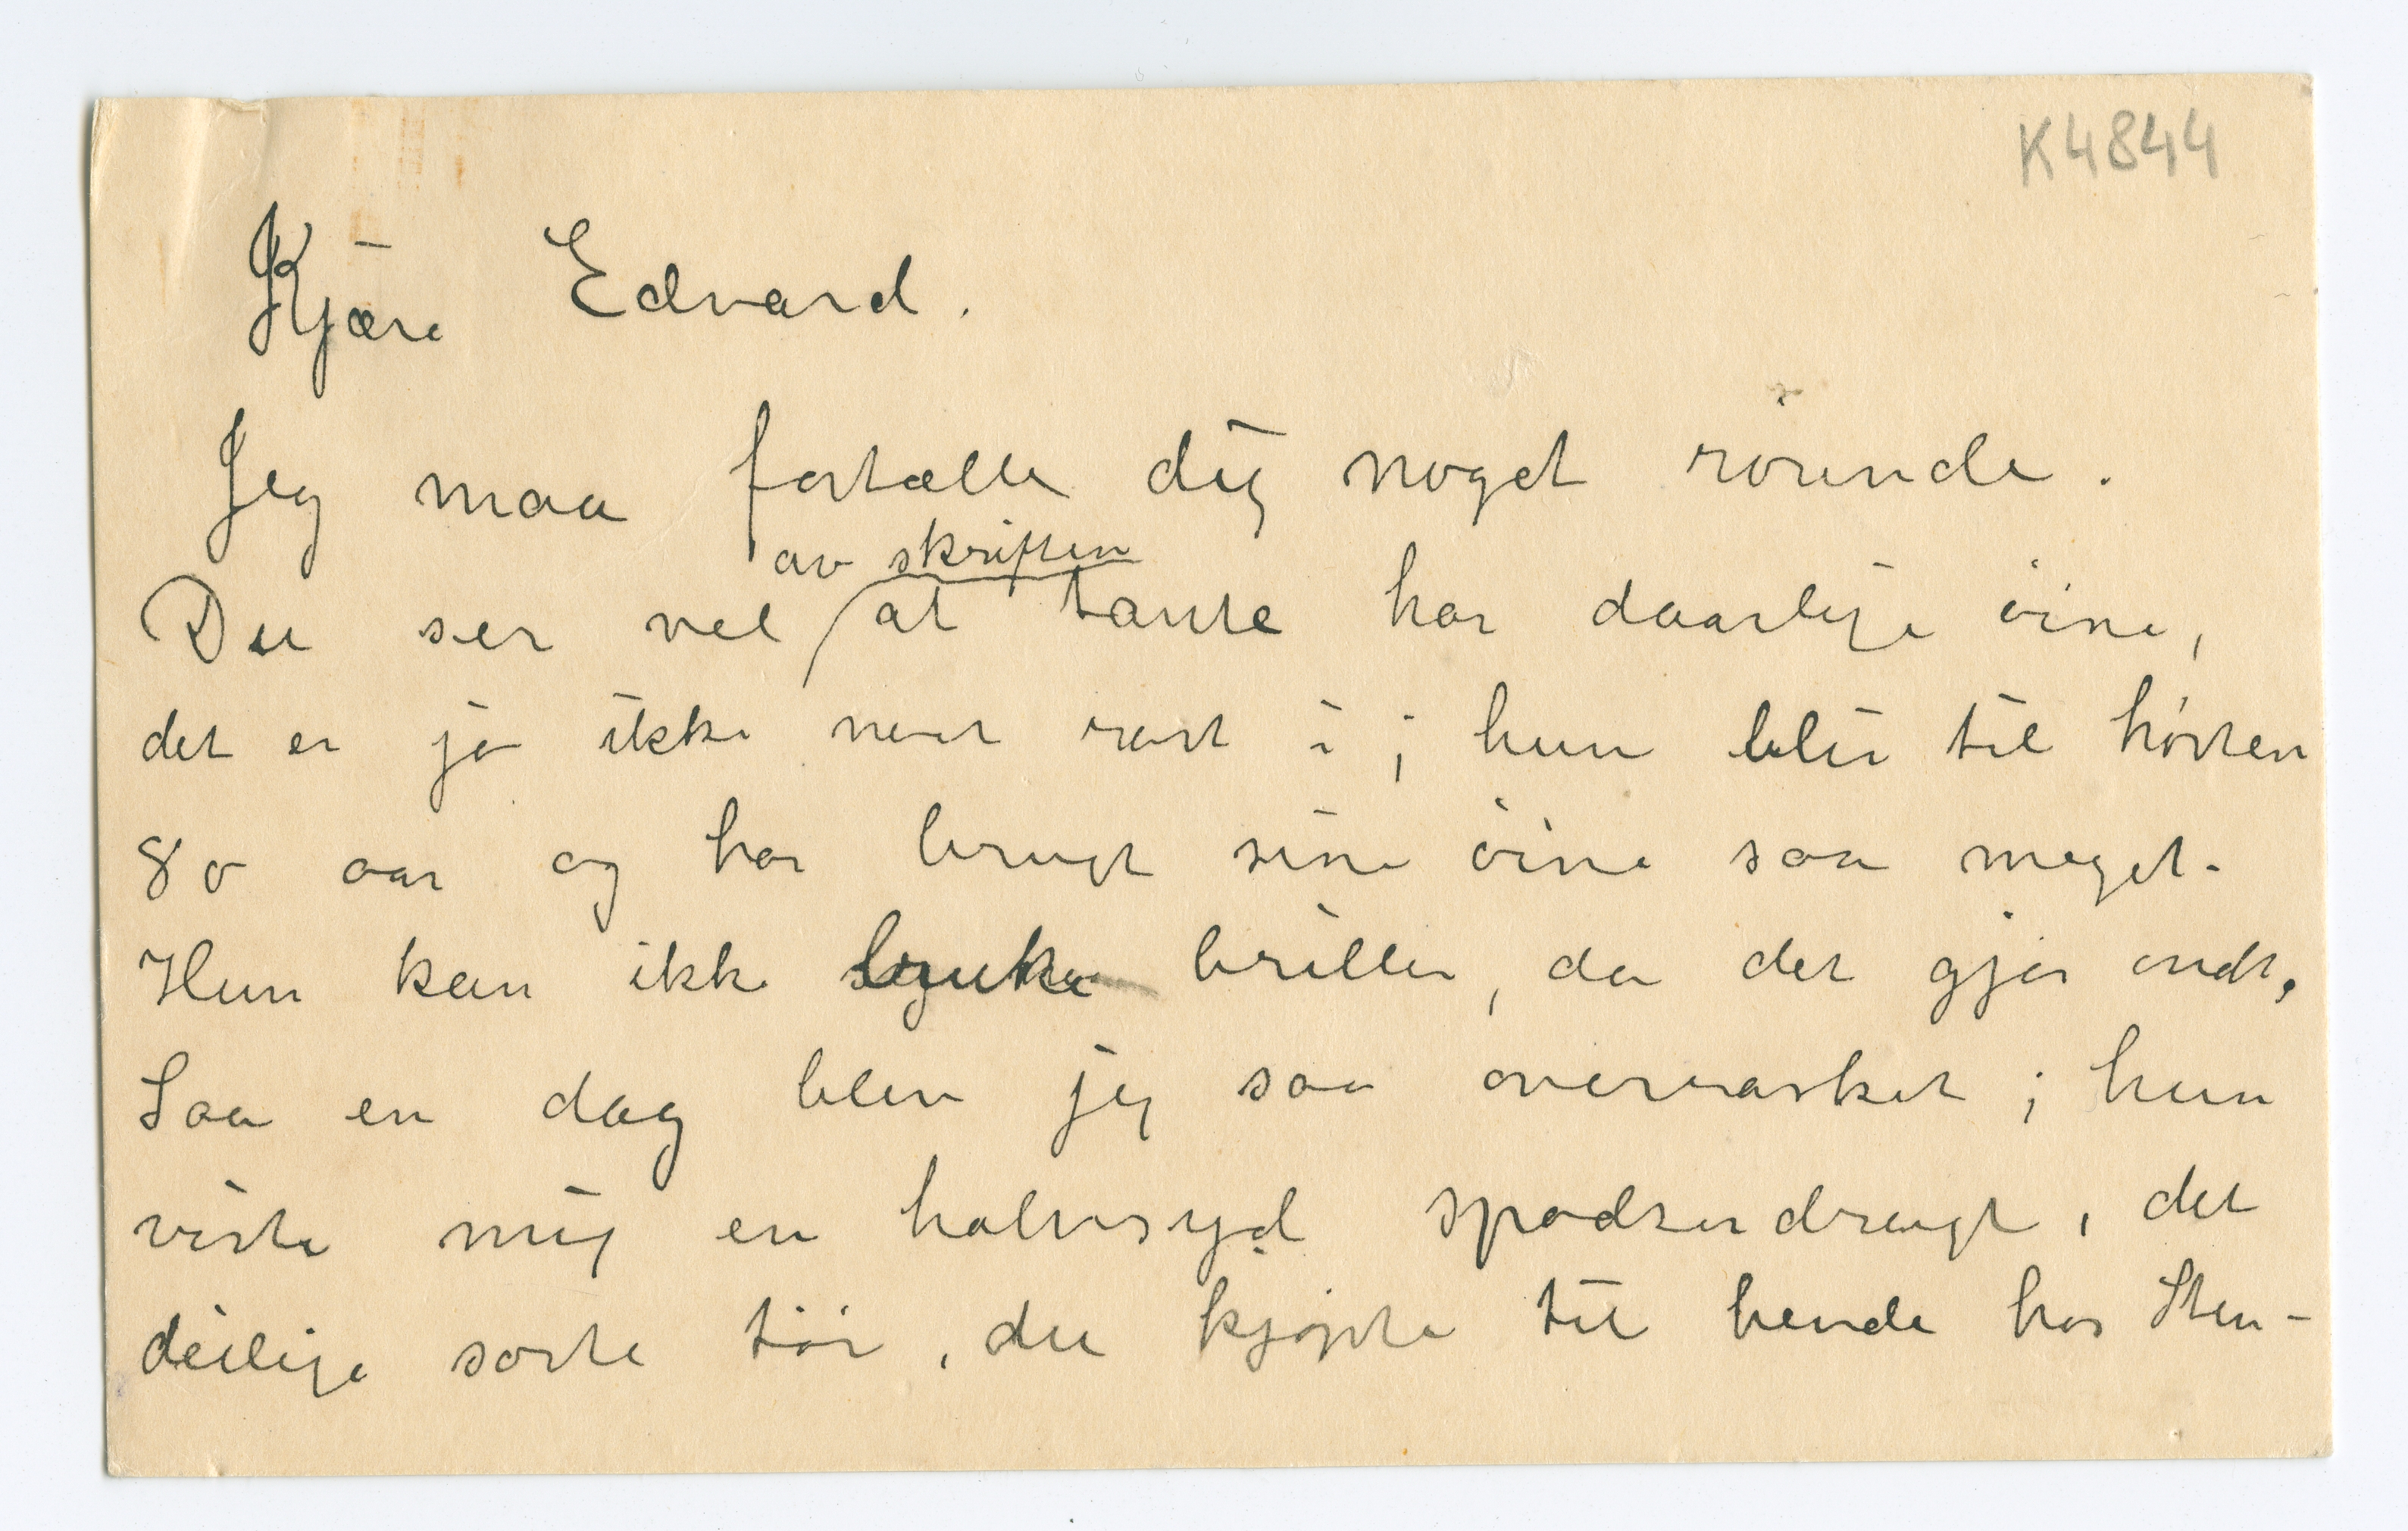 K4844
Kjære Edvard.
Jeg maa fortælle dig noget rörende.
av skriften
Du ser vel at tante har daarlige öine,
det er jo ikke neet rart i; hun blir til hösten
80 aar og har brugt sine öine saa meget.
Hun kan ikke bruke briller, da det gjör ondt,
Saa en dag blev jeg saa overrasket; hun
viste mig en halvsyd spadserdragt, det
deilige sorte töi, du kjöpte til hende hos Sten-